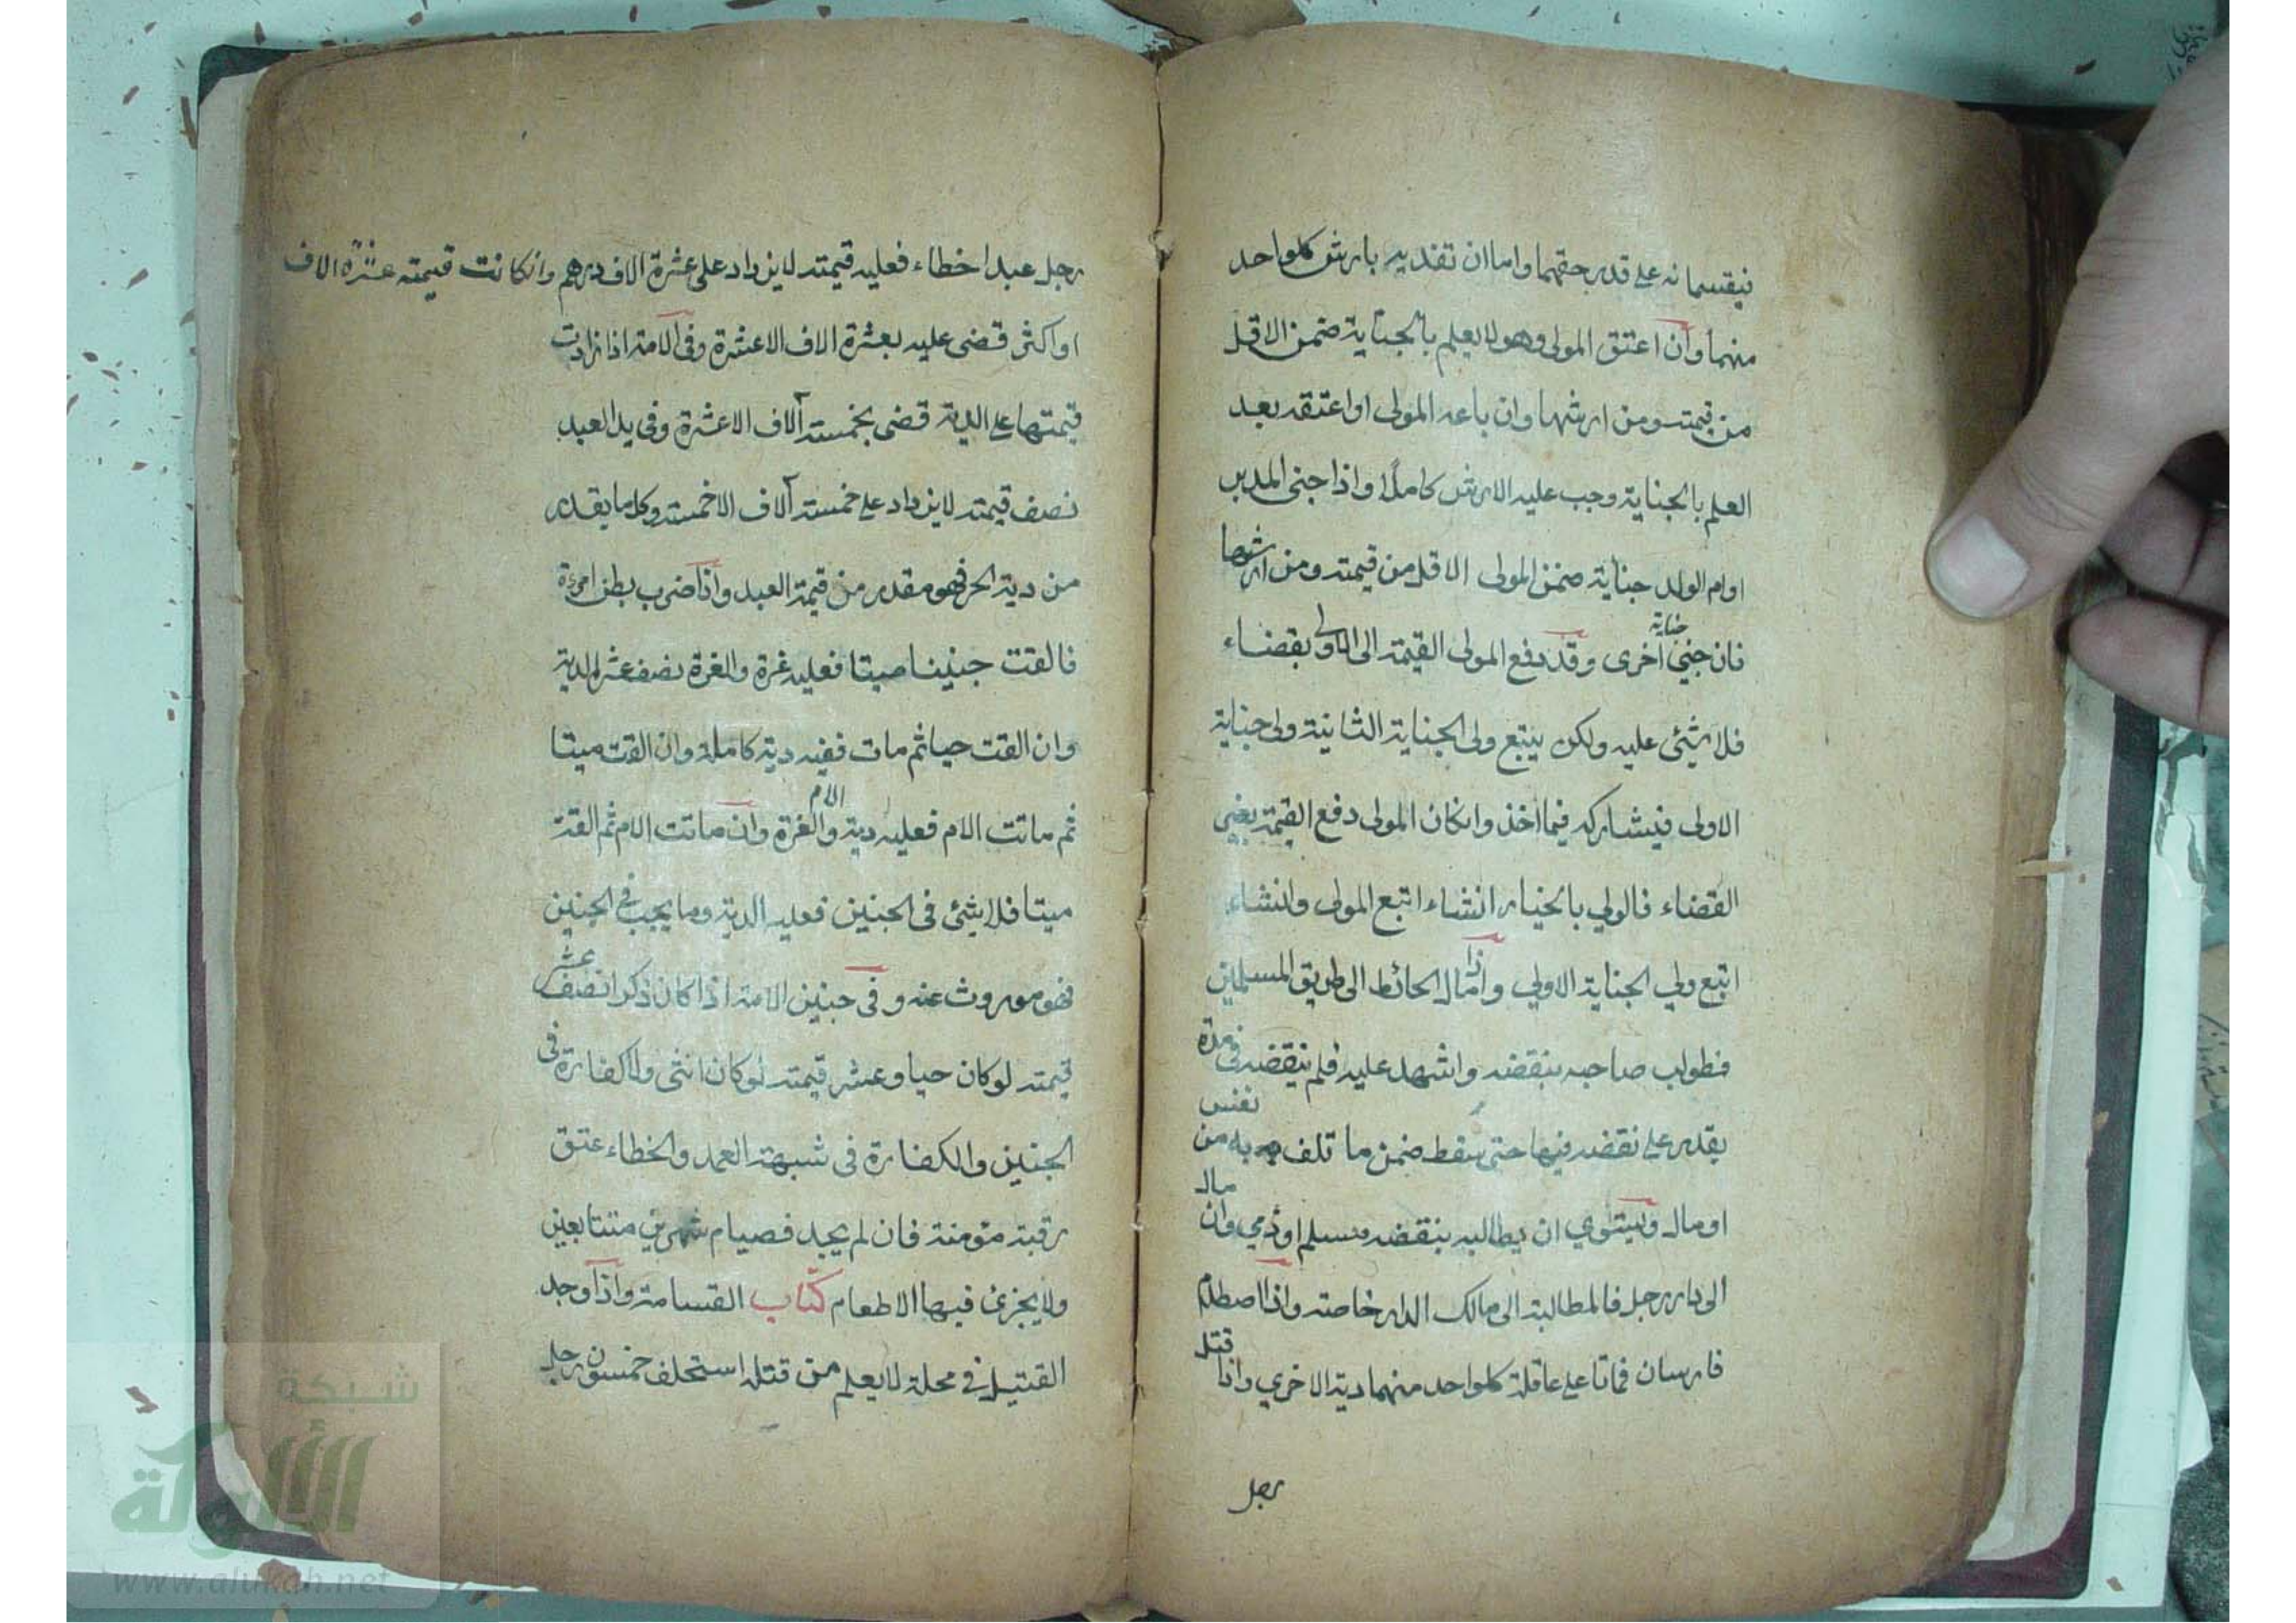 فيقتسمانه على قدر حقهما واما ان تفديه بارش كلواحد
منهما وان اعتق المولى وهو لا يعلم بالجناية ضمن الاقل
من قيمته ومن ارشها وان باعه المولى او اعتقه بعد
العلم بالجناية وجب عليه الارش كاملا واذا جنى المدبر
او ام الولد جناية ضمن المولى الاقل من قيمته ومن ارشها
فان جنى جناية اخرى وقد دفع المولى القيمة الى الاولى بقضاء
فلا شئ عليه ولكن يتبع ولى الجناية الثانية ولى جناية
الاولى فيشاركه فيما اخذ وانكان المولى دفع القيمة بغير
القضاء فالولي بالخيار انشاء اتبع المولى وانشاء
اتبع ولي الجناية الاولي واذا مال الحائط الى طريق المسلمين
فطولب صاحبه بنقضه واشهد عليه فلم ينقضه في مدة
يقدر على نقضه فيها حتى سقط ضمن ما تلف به من نفس
او مال ويستوي ان يطالبه بنقضه مسلم او ذمي وان مال
الى دار رجل فالمطالبة الى مالك الدار خاصة واذا اصطلم
فارسان فماتا على عاقلة كلواحد منهما دية الاخري واذا قتل
رجل
رجل عبدا خطاء فعليه قيمته لا يزداد على عشرة الاف درهم وانكانت قيمته عشرة الاف
او اكثر قضى عليه بعشرة الاف الا عشرة وفى الامة اذا زادت
قيمتها على الدية قضى بخمسة آلاف الا عشرة وفى يد العبد
نصف قيمته لا يزداد على خمسة آلاف الا خمسة وكل ما يقدر
من دية الحر فهو مقدر من قيمة العبد واذا ضرب بطن امرءة
فالقت جنينا ميتا فعليه غرة والغرة نصف عشر الدية
وان القت حيا ثم مات ففيه دية كاملة وان القت ميتا
ثم ماتت الام فعليه دية الام والغرة وان ماتت الام ثم القته
ميتا فلا شئ فى الجنين فعليه الدية وما يجب فى الجنين
فهو موروث عنه وفى جنين الامة اذا كان ذكرا نصف عشر
قيمته لو كان حيا وعشر قيمته لو كان انثى ولا كفارة فى
الجنين والكفارة فى شبهة العمد والخطاء عتق
رقبة مؤمنة فان لم يجد فصيام شهرين متتابعين
ولا يجزئ فيها الاطعام كتاب القسامة واذا وجد
القتيل فى محلة لا يعلم من قتله استحلف خمسون رجل
شبكة
الألوكة
www.alukah.net